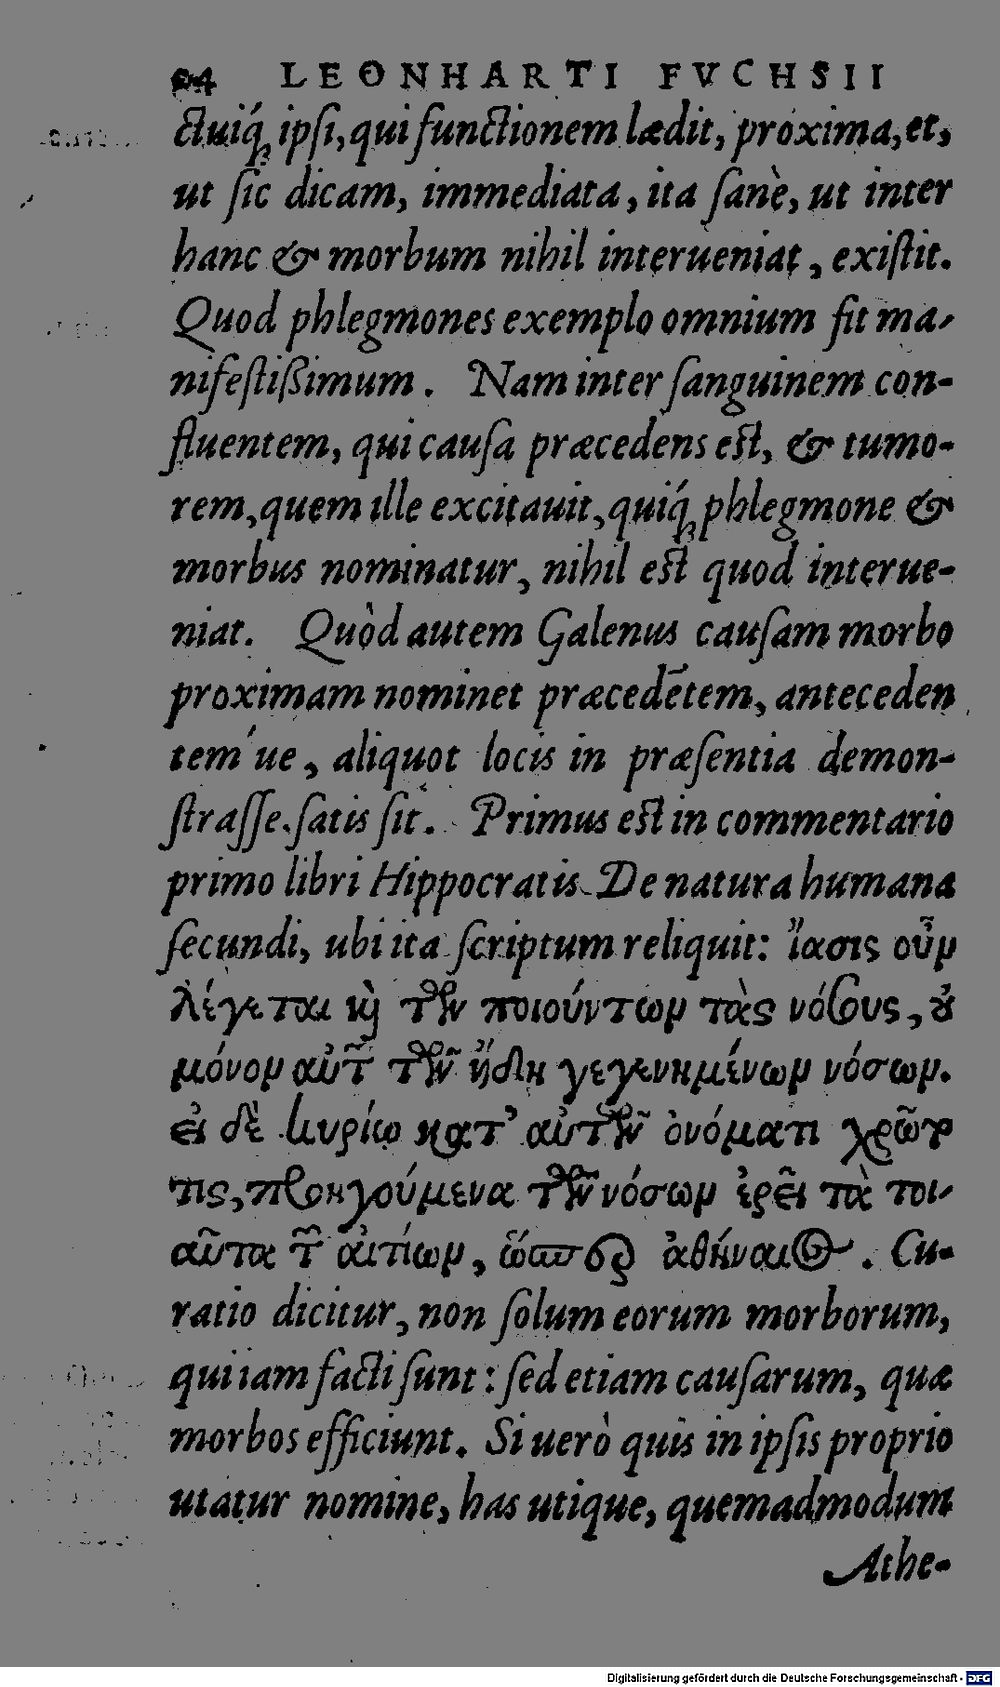 24 LEONHARTI FVCHSII
ctuiq́ꝫ ipsi, qui functionem lædit, proxima, et,
ut sic dicam, immediata, ita sanè, ut inter
hanc & morbum nihil interueniat, existit.
Quod phlegmones exemplo omnium fit ma-
nifestißimum. Nam inter sanguinem con-
fluentem, qui causa præcedens est, & tumo-
rem, quem ille excitauit, quiq́ꝫ phlegmone &
morbus nominatur, nihil est quod interue-
niat. Quòd autem Galenus causam morbo
proximam nominet præcedētem, anteceden
tem´ue, aliquot locis in præsentia demon-
strasse satis sit. Primus est in commentario
primo libri Hippocratis De natura humana
secundi, ubi ita scriptum reliquit: ἴασις οὖν
λέγεται καὶ τῶν ποιούντων τὰς νόσους, οὐ
μόνον αὐτῶν τῶν ἤδη γεγενημένων νόσων.
εἰ δὲ κυρίῳ κατ’ αὐτῶν ὀνόματι χρῶτό
τις, προηγούμενα τῶν νόσων ἐρεῖ τὰ τοι-
αῦτα τῶν αἰτίων, ὥσπερ ἀθήναιος. Cu-
ratio dicitur, non solum eorum morborum,
qui iam facti sunt: sed etiam causarum, quæ
morbos efficiunt. Si uerò quis in ipsis proprio
utatur nomine, has utique, quemadmodum
Athe-
Digitalisierung gefördert durch die Deutsche Forschungsgemeinschaft - DFG